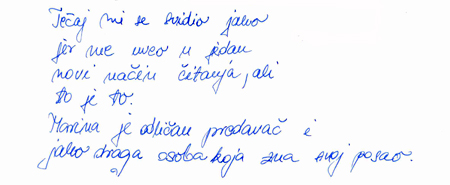 Tečaj mi se svidio jako
jer me uveo u jedan
novi način čitanja, ali
to je to.
Marina je odličan prodavač i
jako draga osoba koja zna svoj posao.